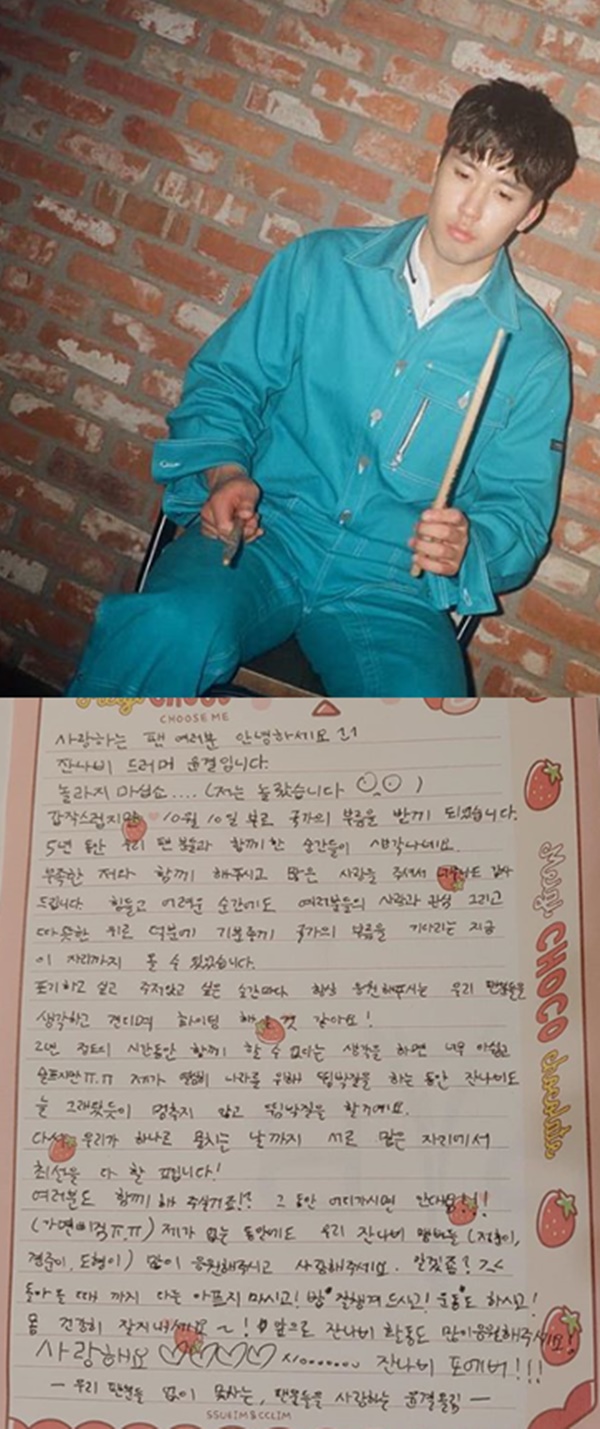 CHOCO
CHOOSE ME
사랑하는 팬 여러분 안녕하세요!!
잔나비 드러머 윤결입니다.
놀라지 마십쇼.... (저는 놀랐습니다 )
갑작스럽지만 ♥ 10월 10일 부로 국가의 부름을 받게 되었습니다.
5년 동안 우리 팬 분들과 함께한 순간들이 생각나네요.
부족한 저와 함께 해주시고 많은 사랑을 주셔서 너무나도 감사
드립니다. 힘들고 어려운 순간에도 여러분들의 사랑과 관심 그리고
따뜻한 위로 덕분에 기분좋게 국가의 부름을 기다리는 지금
이 자리까지 올 수 있었습니다.
포기하고 싶고 주저앉고 싶은 순간마다 항상 응원해주시는 우리 팬분들을
생각하고 견디며 화이팅 했던 것 같아요!
2년 정도의 시간동안 함께 할 수 없다는 생각을 하면 너무 아쉽고
슬프지만 π.π 제가 열심히 나라를 위해 뜀박질을 하는 동안 잔나비도
늘 그래왔듯이 멈추지 않고 뜀박질을 할거예요.
다시 우리가 하나로 뭉치는 날까지 서로 맡은 자리에서
최선을 다 할 겁니다!
여러분도 함께 해 주실거죠!? 그 동안 어디가시면 안대
(가면 미워 π.π) 제가 없는 동안에도 우리 잔나비 멤버들 (정훈이,
경준이, 도형이) 많이 응원해주시고 사랑해주세요. 알겠죠? >.<
돌아올 때 까지 다들 아프지 마시고! 밥 잘챙겨드시고! 운동도 하시고!
몸 건강히 잘지내세요 ~! 앞으로 잔나비 활동도 많이응원해주세요!
사랑해요 ♡♡♡♡ 잔나비 포에버!!!
— 우리 팬분들 없이 못사는, 팬분들을 사랑하는 윤결올림 —
SSUKIM&CCLIM
CHOCO